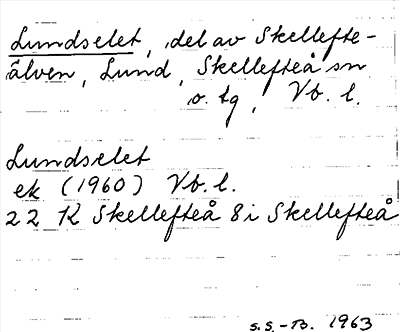 Lundselet, del av Skellefte-
älven, Lund, Skellefteå sn
o. tg, Vb. l.
Lundselet
ek (1960) Vb. l.
22 K Skellefteå 8i Skellefteå
S.S.-B. 1963